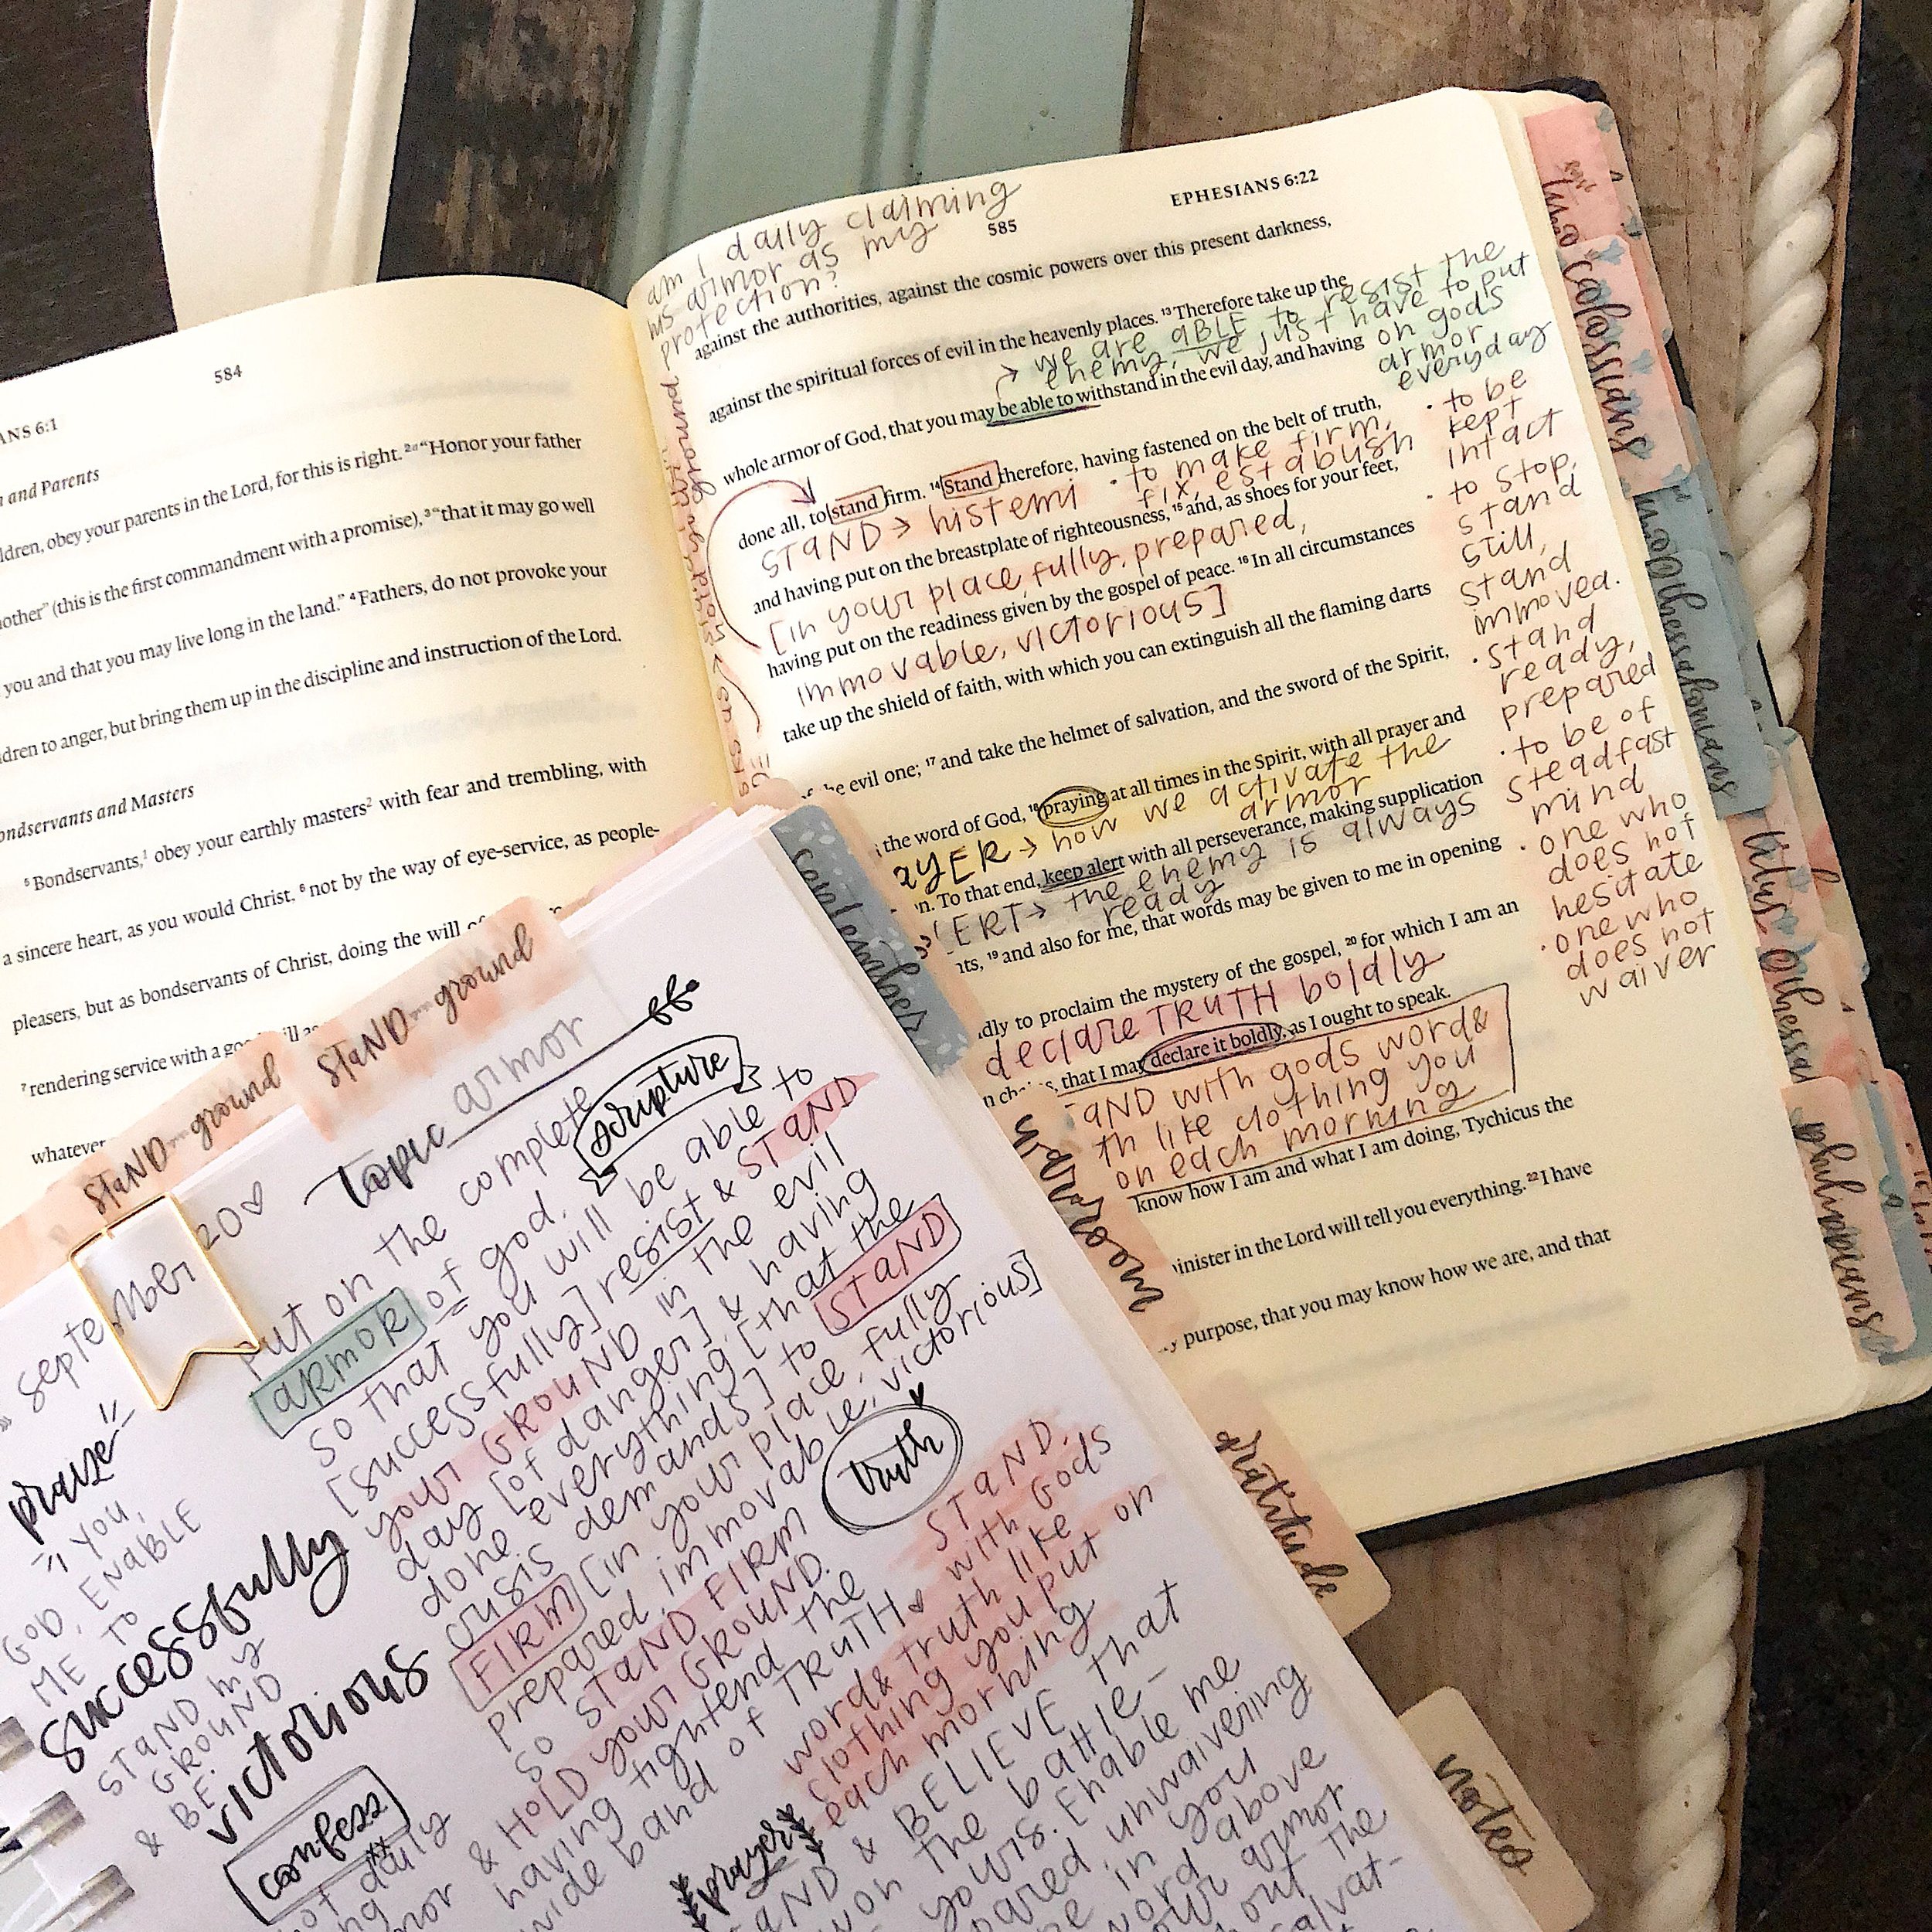 584
ANS 6:1
n and Parents
ldren, obey your parents in the Lord, for this is right. ² "Honor your father
other" (this is the first commandment with a promise), ³ "that it may go well
you and that you may live long in the land." ⁴ Fathers, do not provoke your
dren to anger, but bring them up in the discipline and instruction of the Lord.
ondservants and Masters
⁵ Bondservants,¹ obey your earthly masters² with fear and trembling, with
a sincere heart, as you would Christ, ⁶ not by the way of eye-service, as people-
pleasers, but as bondservants of Christ, doing the will of
⁷ rendering service with a
whatever
EPHESIANS 6:22
585
am I daily claiming
his armor as my
protection?
against the authorities, against the cosmic powers over this present darkness,
against the spiritual forces of evil in the heavenly places. ¹³ Therefore take up the
we are ABLE to resist the
enemy, we just have to put
on gods
armor
everyday
whole armor of God, that you may be able to withstand in the evil day, and having
done all, to stand firm. ¹⁴ Stand therefore, having fastened on the belt of truth,
STAND → histemi
• to make firm,
fix, establish
and having put on the breastplate of righteousness, ¹⁵ and, as shoes for your feet,
[in your place, fully, prepared,
having put on the readiness given by the gospel of peace. ¹⁶ In all circumstances
immovable, victorious]
take up the shield of faith, with which you can extinguish all the flaming darts
the evil one; ¹⁷ and take the helmet of salvation, and the sword of the Spirit,
the word of God, ¹⁸ praying at all times in the Spirit, with all prayer and
AYER → how we activate the
armor
n. To that end, keep alert with all perseverance, making supplication
ERT → the enemy is always
ready
nts, ¹⁹ and also for me, that words may be given to me in opening
dly to proclaim the mystery of the gospel, ²⁰ for which I am an
declare TRUTH boldly
that I may declare it boldly, as I ought to speak.
AND with gods word &
th like clothing you
put on each morning
know how I am and what I am doing, Tychicus the
inister in the Lord will tell you everything. ²² I have
y purpose, that you may know how we are, and that
• to be
kept
intact
• to stop,
stand
still,
stand
immoved.
• stand
ready,
prepared
• to be of
steadfast
mind
• one who
does not
hesitate
• one who
does not
waiver
colossians
thessalonians
titus
philippians
september
warroom
gratitude
notes
STAND your ground
STAND your ground
september 20♡
topic armor
scripture
put on the complete
armor of god,
so that you will be able to
[successfully] resist & STAND
your GROUND in the evil
day [of danger] & having
done everything [that the
crisis demands] to STAND
FIRM [in your place, fully
prepared, immovable, victorious]
so STAND FIRM
& HOLD your GROUND.
having tightend the
wide band of TRUTH
truth
STAND,
with Gods
word & truth like
clothing you put on
each morning
praise
you,
GOD, ENABLE
ME TO
successfully
STAND my
GROUND
& BE
victorious
confess
not daily
prayer
AND & BELIEVE that
the battle-
yours. Enable me
unwaivering
in you
word above
armor
out the
salvat-